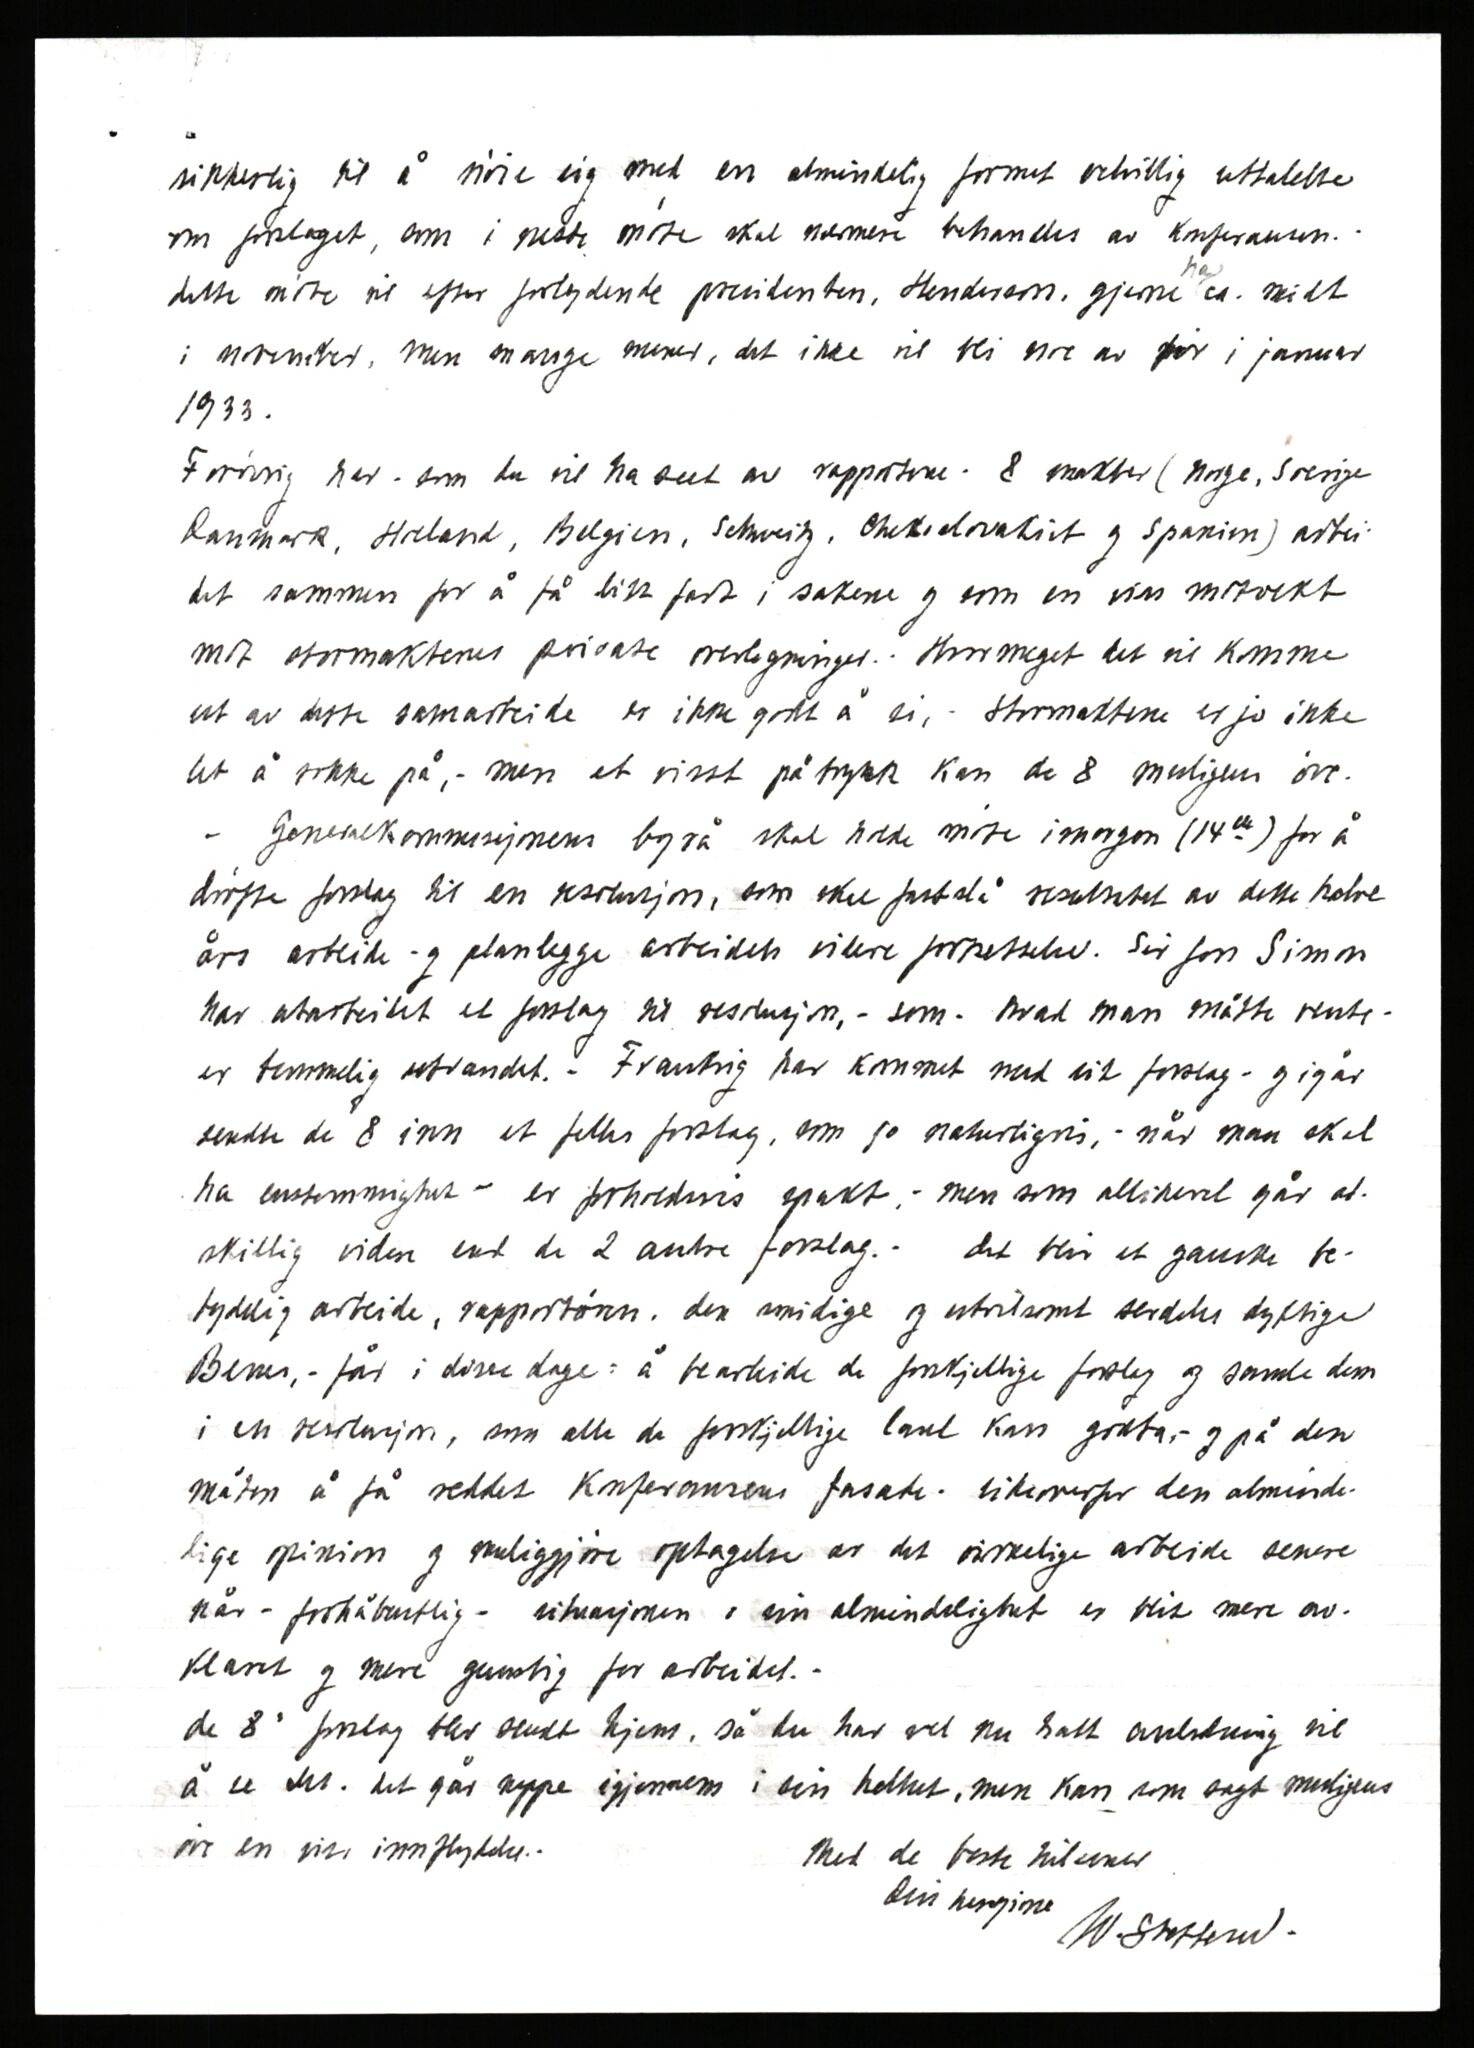 sikkerlig til å nöie sig med en almindelig formet velvillig uttalelse
om forslaget, som i neste möte skal nærmere behandles av Konferansen.-
dette möte vil efter forlydende presidenten, Henderson, gjerne ha ca. midt
i november, men mange mener, det ikke vil bli noe av för i januar
1933.
Forövrig har - som du vil ha sett av rapportene - 8 makter (Norge, Sverige
Danmark, Holland, Belgien, Schweitz, Chekoslovakiet og Spanien) arbei-
det sammen for å få litt fart i sakene og som en viss motvekt
mot stormaktenes private overlegninger.- Hvormeget det vil komme
ut av dette samarbeide er ikke godt å si, - Stormaktene er jo ikke
let å rokke på, - men et visst påtrykk kan de 8 muligens öve.
- Generalkommisjonens byrå skal holde möte imorgen (14de) for å
dröfte forslag til en resolusjon, som skal fastslå resultatet av dette halve
års arbeide - og planlegge arbeidets videre fortsettelse. Sir Jon Simon
har utarbeidet et forslag til resolusjon, - som - hvad man måtte vente -
er temmelig utvandet. - Frankrig har kommet med sit forslag - og igår
sendte de 8 inn et felles forslag, som jo naturligvis, - når man skal
ha enstemmighet - er forholdsvis spakt, - men som allikevel går ad-
skillig videre end de 2 andre forslag. - det blir et ganske be-
tydelig arbeide, rapportören, den smidige og utvilsomt særdeles dyktige
Benes, - får i disse dage: å bearbeide de forskjellige forslag og samle dem
i en resolusjon, som alle de forskjellige land kan godta, - og på den
måten å få reddet Konferansens fasade - likeoverfor den alminde-
lige opinion og muliggjöre optagelse av det virkelige arbeide senere
når - forhåbentlig - situasjonen i sin almindelighet er blit mere av-
klaret og mere gunstig for arbeidet. -
de 8's forslag blev sendt hjem, så du har vel nu hatt anledning til
å se det. det går neppe igjennem i sin helhet, men kan som sagt muligens
öve en viss innflydelse.-
Med de beste hilsener
din hengivne